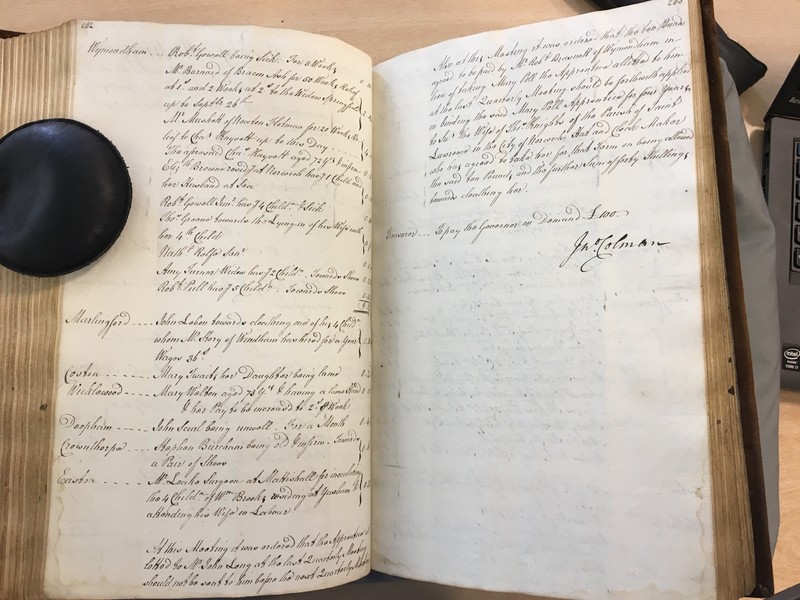 282
Wymondham Robt. Gowell being Sick. For 8 Weeks
Mr. Barnard of Bracon Ash for 50 Weeks Relief
at 1s. and 2 Weeks at 2s. to the Widow Springfield
up to Septbr 26th.
Mr. of Newton Flotman for 20 Weeks Re
lief to Chas. Haysett up to this Day
The aforesaid Chas. Haysett aged 72 Yrs. & infirm
Elizth. Browne resid.g at Norwich has 1 Child and
her Husband at Sea
Robt. Gowell Junr. has 4 Childn. & Sick
Thos. Greene towards the Lying in of his Wife with
her 4th Child
Nathl. Rolfe Senr.
Amy Turner Widow has 2 Childn. Towards Shoes
Robt. Pull has 5 Childn. Towards Shoes
Marlingford John Lebon towards cloathing one of his 4 Childn.
whom Mr. Story of Windham has hired for a Year
Wages 36s.
Coston Mary Twaits her Daughter being lame
Wicklewood Mary Walton aged 73 Yrs. & having a lame Hand
her Pay to be increased to 2s. P Week
Deopham John Seual being unwell. For a Month
Crownthorpe Stephen Burcham being old & infirm. Towards
a Pair of Shoes
Easton Mr. Leeke Surgeon at Mattishall for inoculating
the 4 Childn. of Wm. Brooks residing at Yaxham &
attending his Wife in Labour
At this Meeting it was ordered that the Apprentice al
lotted to Mr. John Long at the last Quarterly Meeting
should not be sent to him before the next Quarterly Meeting
283
Also at this Meeting it was ordered that the ten Pounds
agreed to be paid by Mr. Robt. of Wymondham in
lieu of taking Mary Poll the Apprentice allotted to him
at the last Quarterly Meeting should be forthwith applied
in binding the said Mary Poll Apprentice for four Years
to the Wife of Thos. Knights of the Parish of Saint
Lawrence in the City of Norwich and Maker
who has agreed to take her for that Term on being allowed
the said ten Pounds and the further Sum of forty Shillings
towards cloathing her.
Treasurer To pay the Governor on Demand £100
Jno. Colman
intel
inside
CORE i7